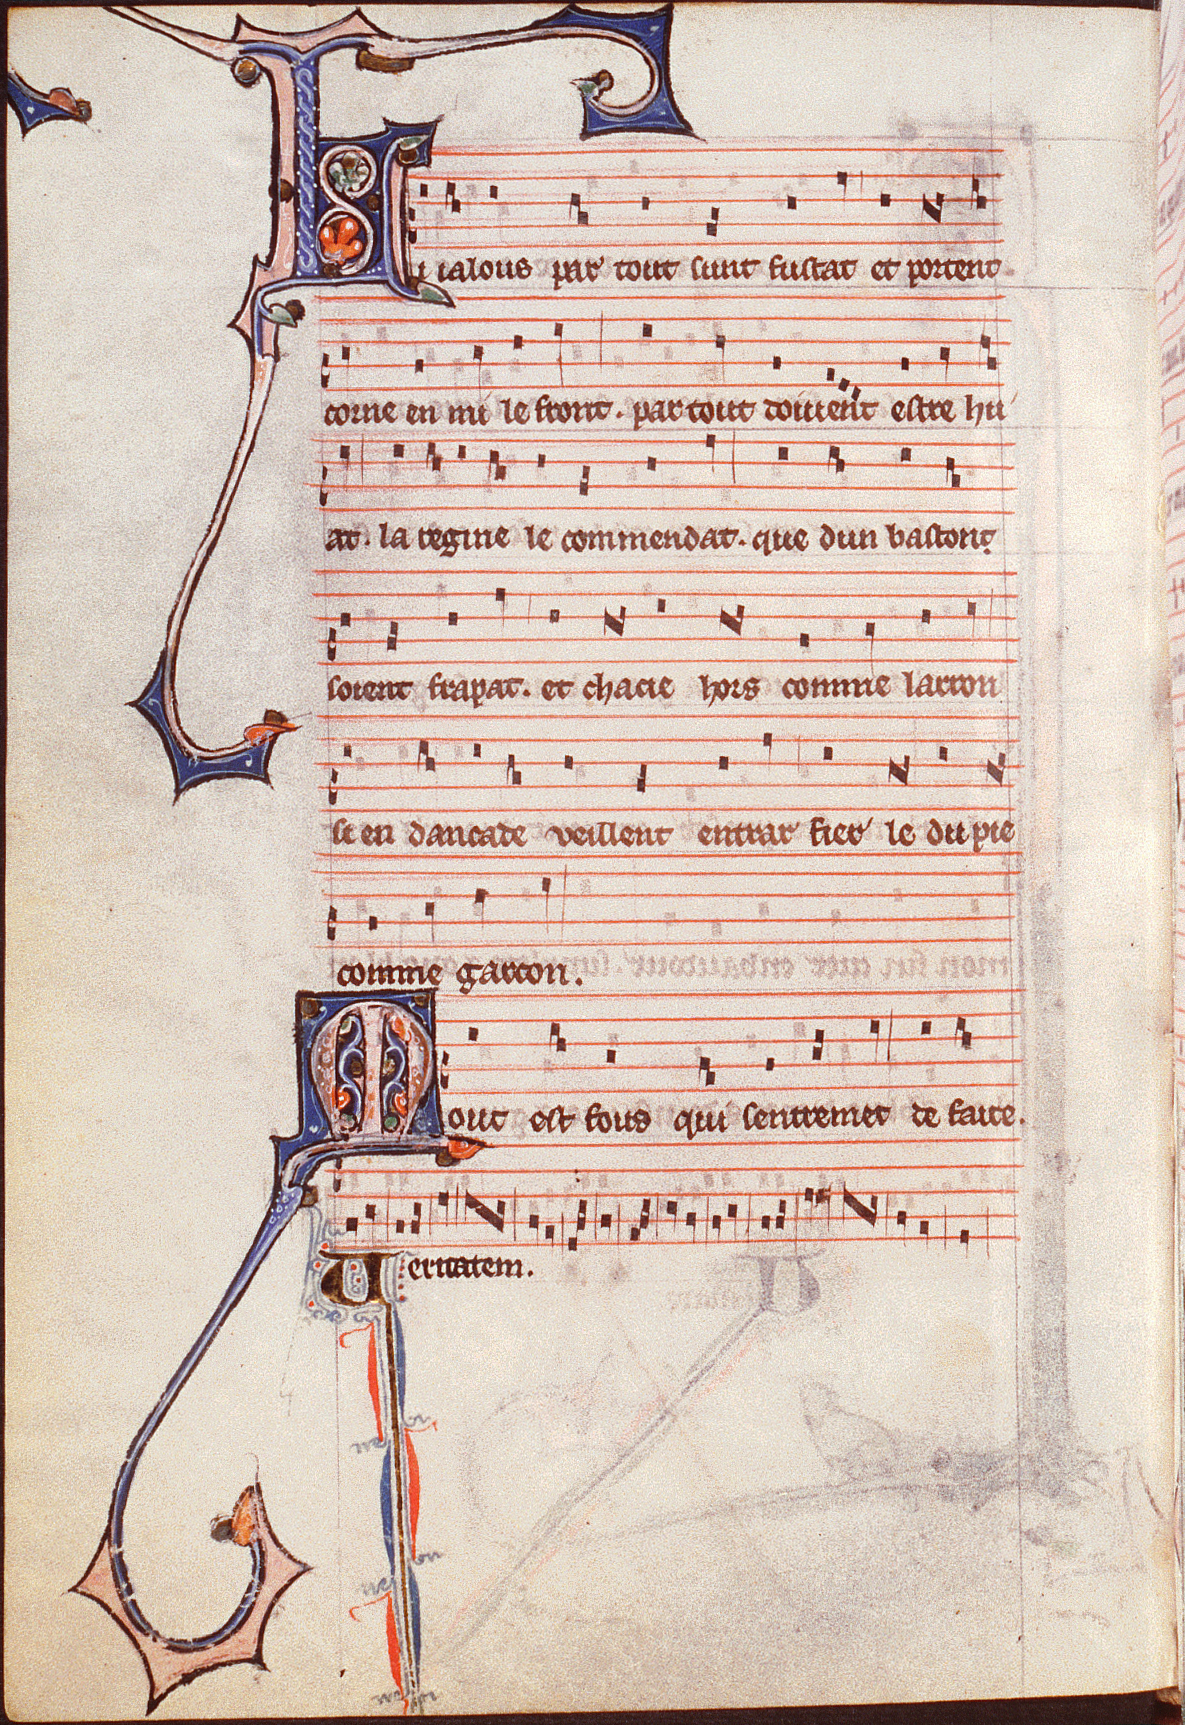 Li ialous par tout sunt fustat et portent
corne en mi le front. par tout doiuent estre hu
at. la regine le commendat. que dun baston
soient frapat. et chacie hors comme larron
se en dancade veillent entrar fier le du pie
comme garcon.
Mout est fous qui sentremet de faire.
Veritatem.